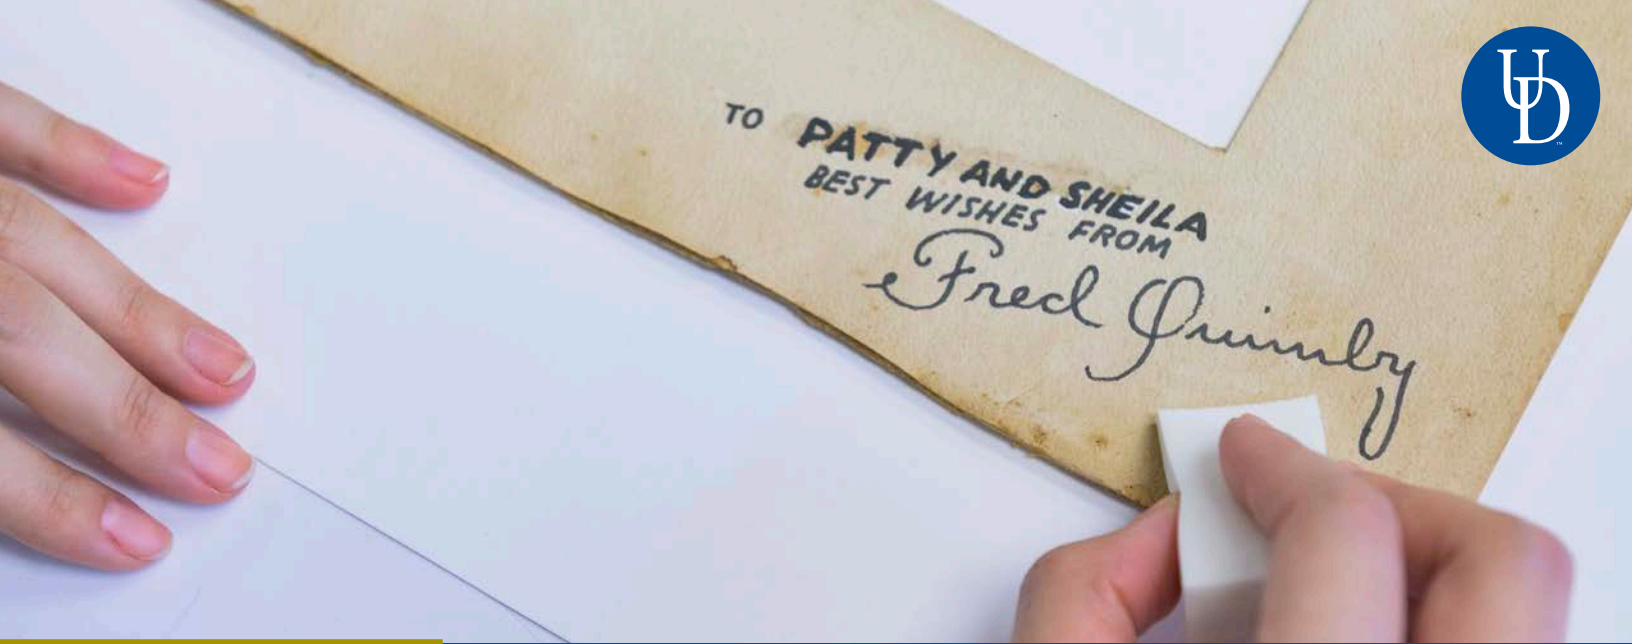 TO PATTY AND SHEILA
BEST WISHES FROM
Fred Quimby
UD